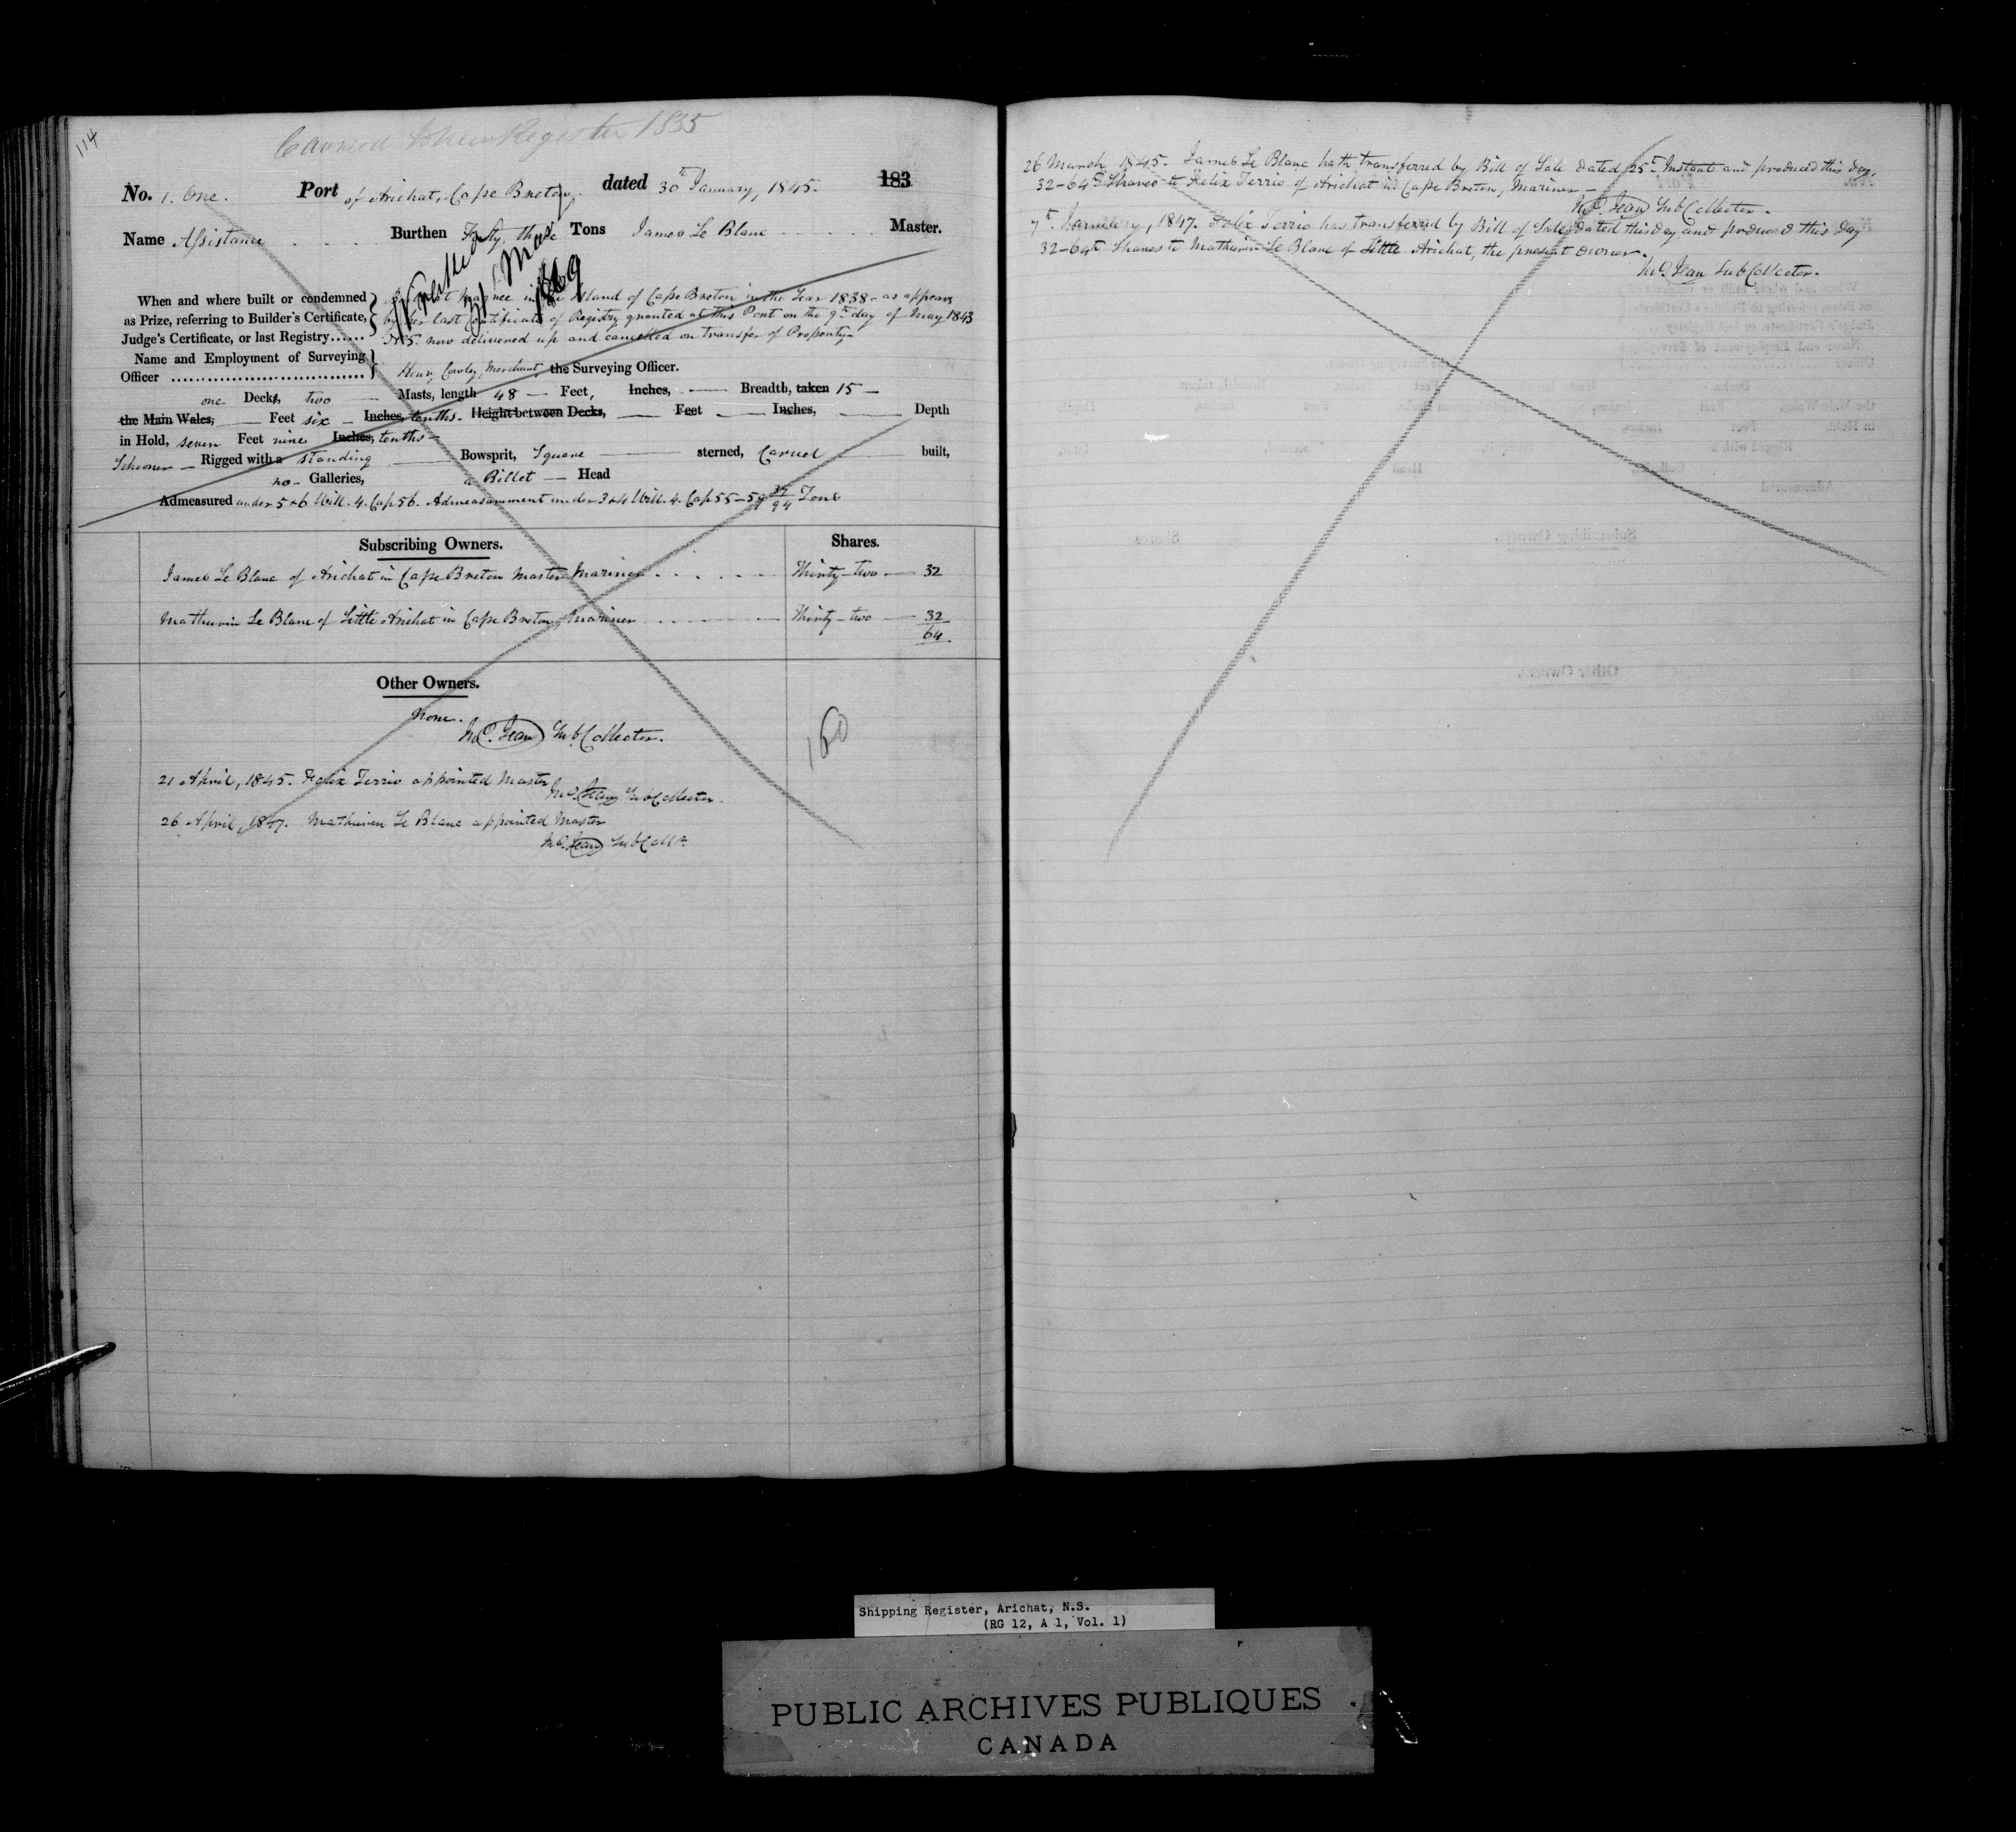 114
Carried to New Register 1855
No. 1. One. Port of Arichat, Cape Breton, dated 30th January, 1845. 183
Name Assistance Burthen Forty three Tons James Le Blanc Master.
31st May
1869
When and where built or condemned
as Prize, referring to Builder's Certificate,
Judge's Certificate, or last Registry......
in the Island of Cape Breton in the Year 1838 - as appears
by her last Certificate of Registry granted at this Port on the 9th day of May 1843
No 5. now delivered up and cancelled on transfer of Property-
Name and Employment of Surveying
Officer
Henry Cowley, Merchant, the Surveying Officer.
one Decks, two Masts, length 48 — Feet, Inches, — Breadth, taken 15 —
the Main Wales, — Feet six — Inches, tenths. Height between Decks, — Feet — Inches, — Depth
in Hold, seven Feet nine Inches, tenths —
Schooner — Rigged with a standing — Bowsprit, Square — sterned, Carvel — built,
no - Galleries, a Billet — Head
Admeasured under 5 & 6 Will. 4. Cap 56. Admeasurement under 3 & 4 Will. 4. Cap 55 - 59 /94 Tons
Subscribing Owners. Shares.
James Le Blanc of Arichat in Cape Breton Master Mariner Thirty-two — 32
Mathurin Le Blanc of Little Arichat in Cape Breton, Mariner Thirty-two — 32
64.
Other Owners.
None.
Jean Sub Collector.
160
21 April, 1845. Felix Terrio appointed Master
Jean Sub Collector.
26 April, 1847. Mathurin Le Blanc appointed Master
Jean Sub Collr.
26 March 1845. James Le Blanc hath transferred by Bill of Sale dated 25th Instant and produced this day,
32-64th Shares to Felix Terrio of Arichat in Cape Breton, Mariner —
Jean Sub Collector.
7th January, 1847. Felix Terrio has transferred by Bill of Sale, dated this day and produced this day
32-64th Shares to Mathurin Le Blanc of Little Arichat, the present owner.
Jean Sub Collector.
Shipping Register, Arichat, N.S.
(RG 12, A 1, Vol. 1)
PUBLIC ARCHIVES PUBLIQUES
CANADA